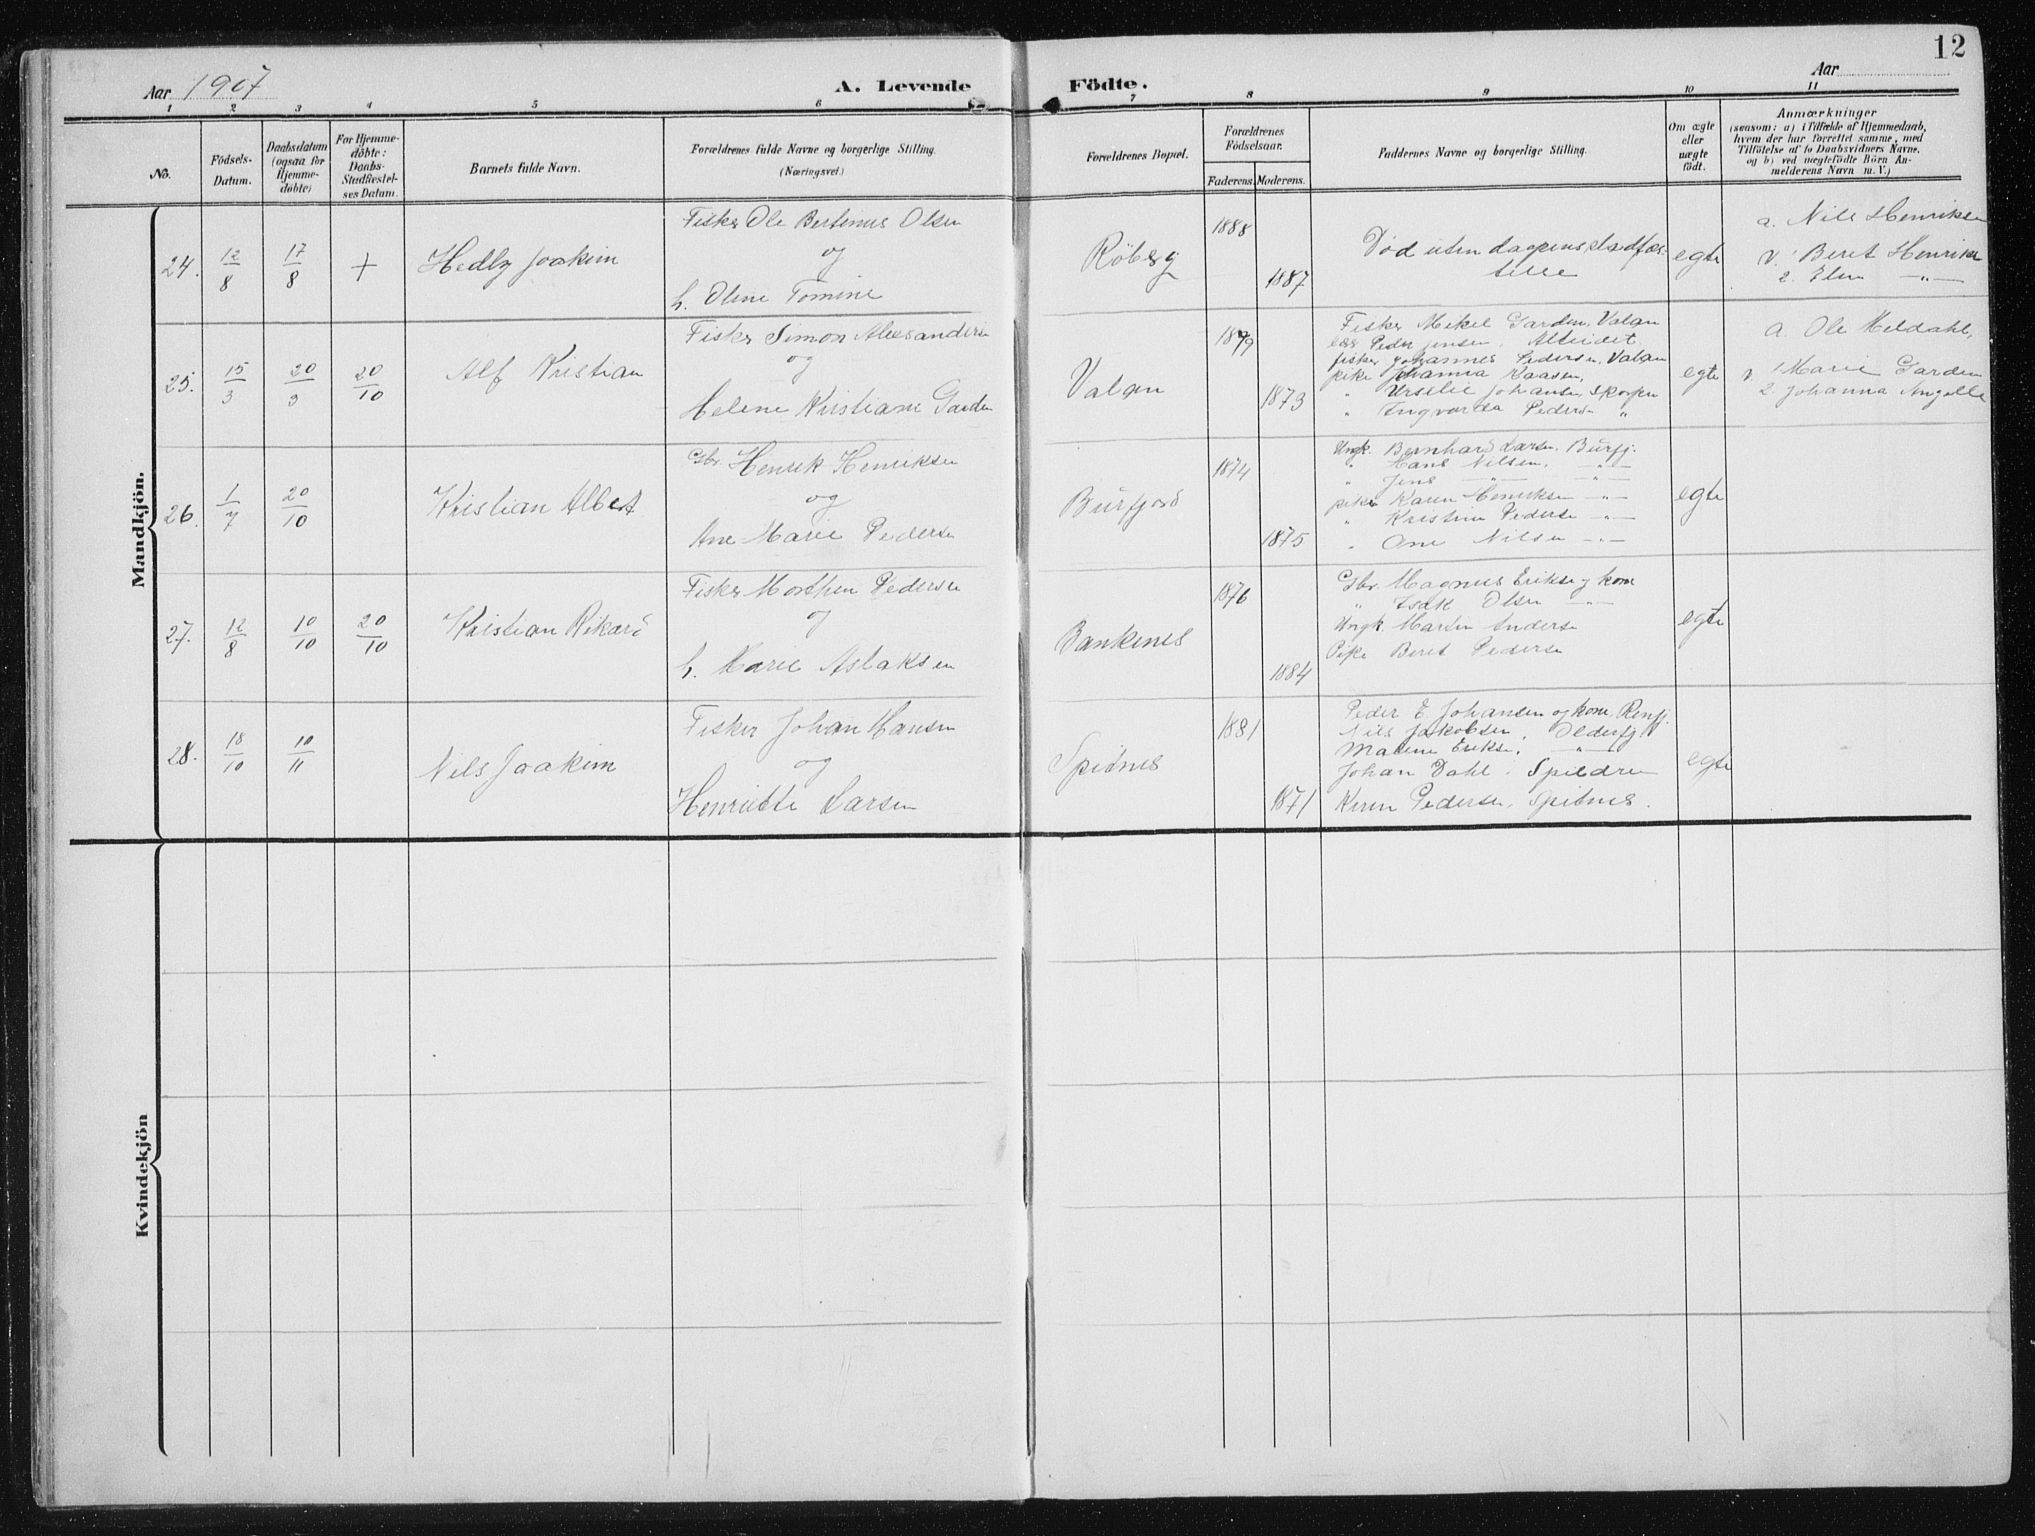 12
Aar 1907
A. Levende Födte.
Aar
1 2 3 4 5 6 7 8 9 10 11
No.
Födsels-
Datum.
Daabsdatum
(ogsaa for
Hjemme-
döbte)
For Hjemme-
döbte:
Daabs-
Stadfæstel-
ses Datum.
Barnets fulde Navn.
Forældrenes fulde Navne og borgerlige Stilling.
(Næringsvei.)
Forældrenes Bopæl.
Forældrenes
Födselsaar.
Faderens. Moderens.
Faddernes Navne og borgerlige Stilling.
Om ægte
eller
uægte
födt.
Anmærkninger
(saasom: a) i Tilfælde af Hjemmedaab,
hvem der har forrettet samme, med
Tilföielse af to Daabsvidners Navne,
og b) ved uægtefödte Börn An-
melderens Navn m. V.)
Mandkjön.
24. 12/8 17/8 + Hedly Joakim
Fisker Ole Bertinus Olsen
og
h. Oline Tomine
Röberg
1888
1887
Död uten daapens stadfæs-
telse
egte
a. Nils Henriksen
v. 1 Beret Henriksen
2. Elen -"-
25. 15/3 20/3 20/10 Alf Kristian
Fisker Simon Alexandersen
og
Helene Kristiane Garden
Valan
1879
1873
Fisker Mikel Garden, Valan
Peder Jensen, Alteidet
fisker Johannes Pedersen, Valan
pike Johanna Kaasen,
" Urselie Johansen, Skorpen
" Ingvarda Pederse "
egte
a. Ole Meldahl,
v. 1 Marie Garden
2. Johanna Angell
26. 1/7 20/10 Kristian Albert
Gbr. Henrik Henriksen
og
Ane Marie Pedersen
Burfjord
1874
1875
Ungk. Bernhard Larsen, Burfj.
" Hans Nilsen, -"-
" Jens -"- -"-
pike Karen Henriksen -"-
" Kristine Pederse -"-
" Ane Nilsen -"-
egte
27. 12/8 10/10 20/10 Kristian Rikard
Fisker Morthen Pedersen
og
h. Marie Aslaksen
Bankenes
1876
1884
Gbr. Magnus Erikse og kone
" Isak Olsen -"-
Ungk. Martin Anderse
Pike Beret Pederse
egte
28. 18/10 10/11 Nils Joakim
Fisker Johan Hansen
og
Henriette Larsen
Spidnes
1881
1871
Peder E. Johansen og kone,
Nils Jakobsen, Olderfj
Marine Erikse, -"-
Johan Dahl, Spildren
Karen Pedersen, Spitnes.
egte
Kvindekjön